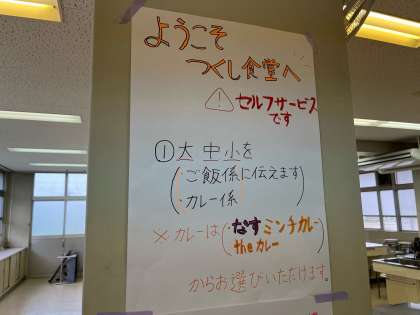 ようこそ
つくし食堂へ
セルフサービス
です
①大中小を
・ご飯係に伝えます
・カレー係
※カレーは なすミンチカレー
theカレー
からお選びいただけます。